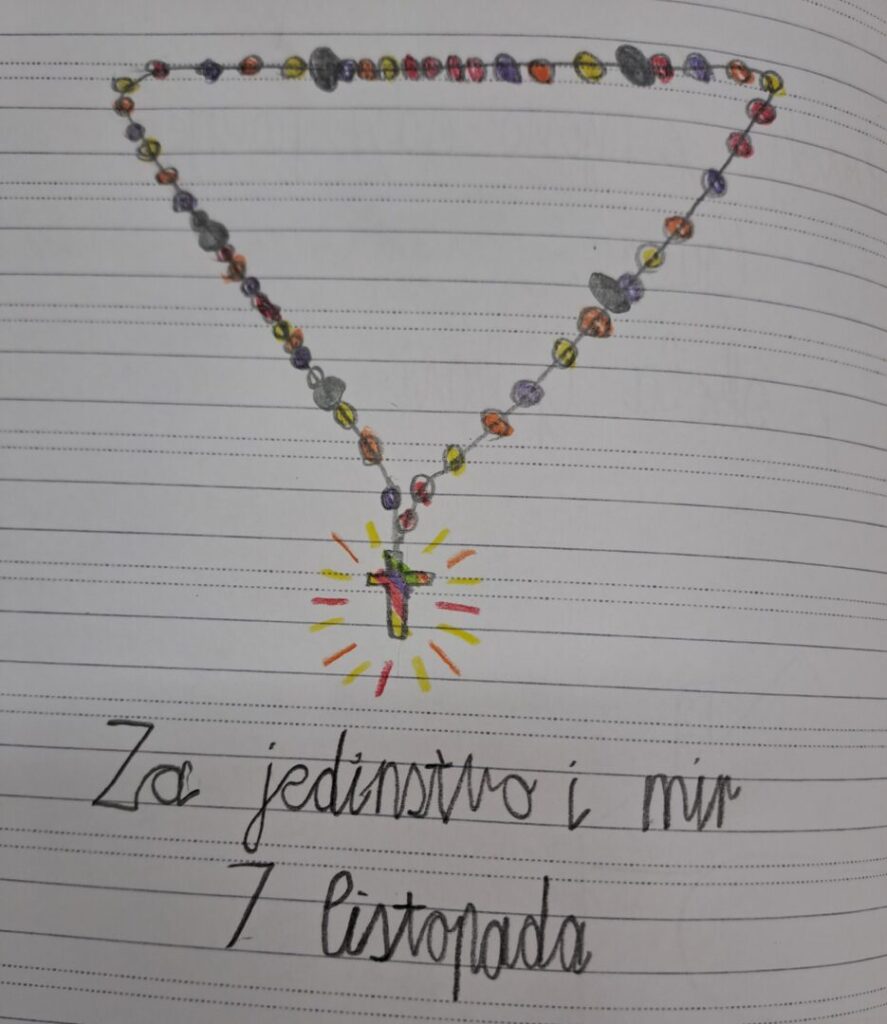 Za jedinstvo i mir
7 listopada